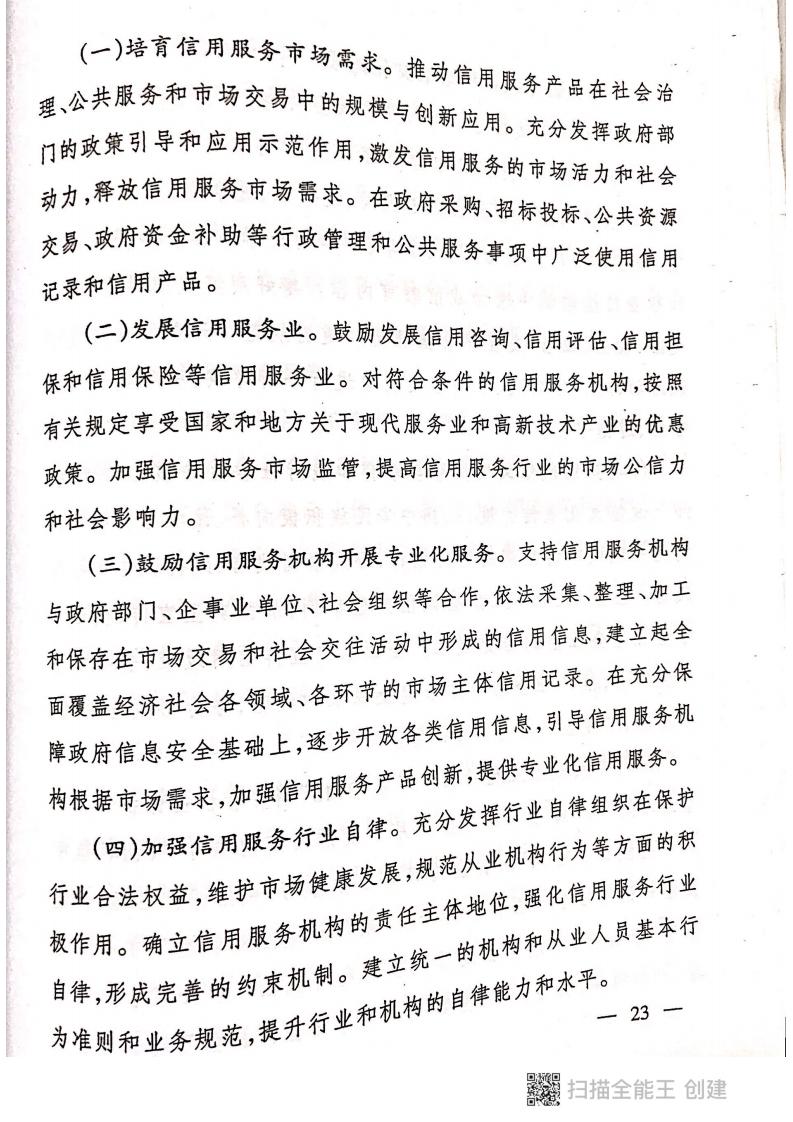 (一)培育信用服务市场需求。推动信用服务产品在社会治
理、公共服务和市场交易中的规模与创新应用。充分发挥政府部
门的政策引导和应用示范作用,激发信用服务的市场活力和社会
动力,释放信用服务市场需求。在政府采购、招标投标、公共资源
交易、政府资金补助等行政管理和公共服务事项中广泛使用信用
记录和信用产品。
(二)发展信用服务业。鼓励发展信用咨询、信用评估、信用担
保和信用保险等信用服务业。对符合条件的信用服务机构,按照
有关规定享受国家和地方关于现代服务业和高新技术产业的优惠
政策。加强信用服务市场监管,提高信用服务行业的市场公信力
和社会影响力。
(三)鼓励信用服务机构开展专业化服务。支持信用服务机构
与政府部门、企事业单位、社会组织等合作,依法采集、整理、加工
和保存在市场交易和社会交往活动中形成的信用信息,建立起全
面覆盖经济社会各领域、各环节的市场主体信用记录。在充分保
障政府信息安全基础上,逐步开放各类信用信息,引导信用服务机
构根据市场需求,加强信用服务产品创新,提供专业化信用服务。
(四)加强信用服务行业自律。充分发挥行业自律组织在保护
行业合法权益,维护市场健康发展,规范从业机构行为等方面的积
极作用。确立信用服务机构的责任主体地位,强化信用服务行业
自律,形成完善的约束机制。建立统一的机构和从业人员基本行
为准则和业务规范,提升行业和机构的自律能力和水平。
— 23 —
扫描全能王 创建